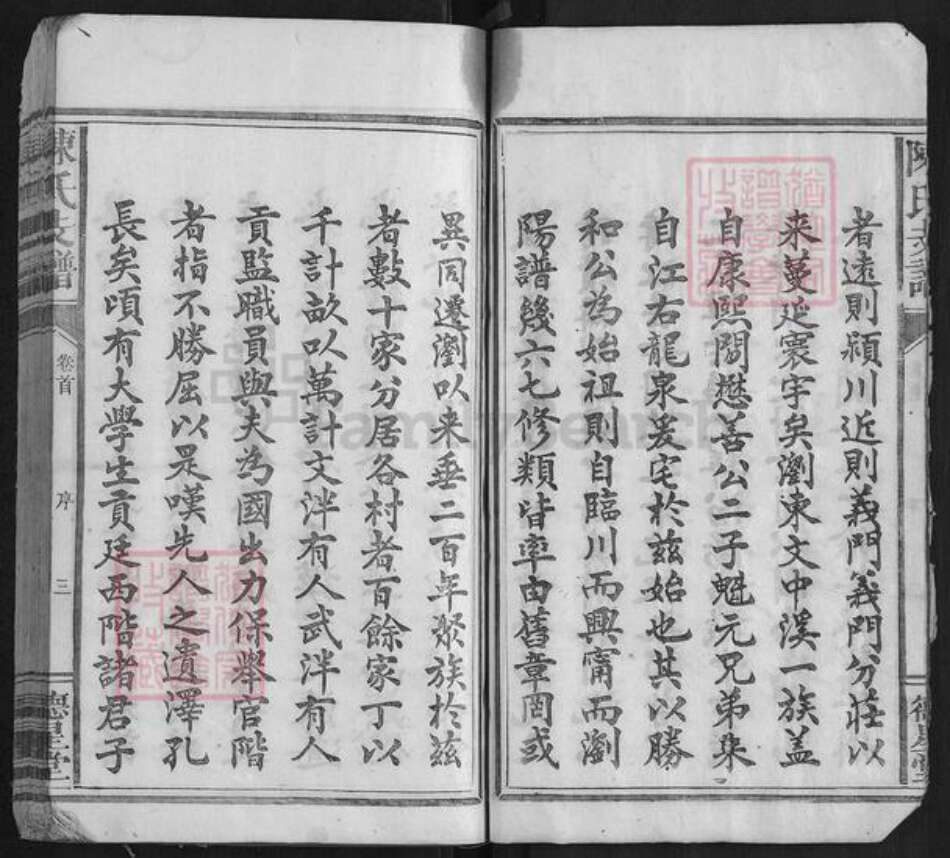 者遠則潁川近則義門義門分莊以
来蔓延寰宇矣瀏東文中溪一族盖
自康熙間懋善公二子魁元兄弟枭
自江右龍泉爰宅於兹始也其以勝
和公為始祖則自臨川而興甯而瀏
陽譜幾六七修類皆率由舊章罔或
異同遷瀏以来垂二百年聚族於兹
者數十家分居各村者百餘家丁以
千計畝以萬計文泮有人武泮有人
貢監職員與夫為國出力保舉官階
者指不勝屈以是嘆先人之遺澤孔
長矣頃有大學生貢廷西階諸君子
陳氏支譜
卷首
序
三
德星堂
陳氏支譜
德星堂
familysearch